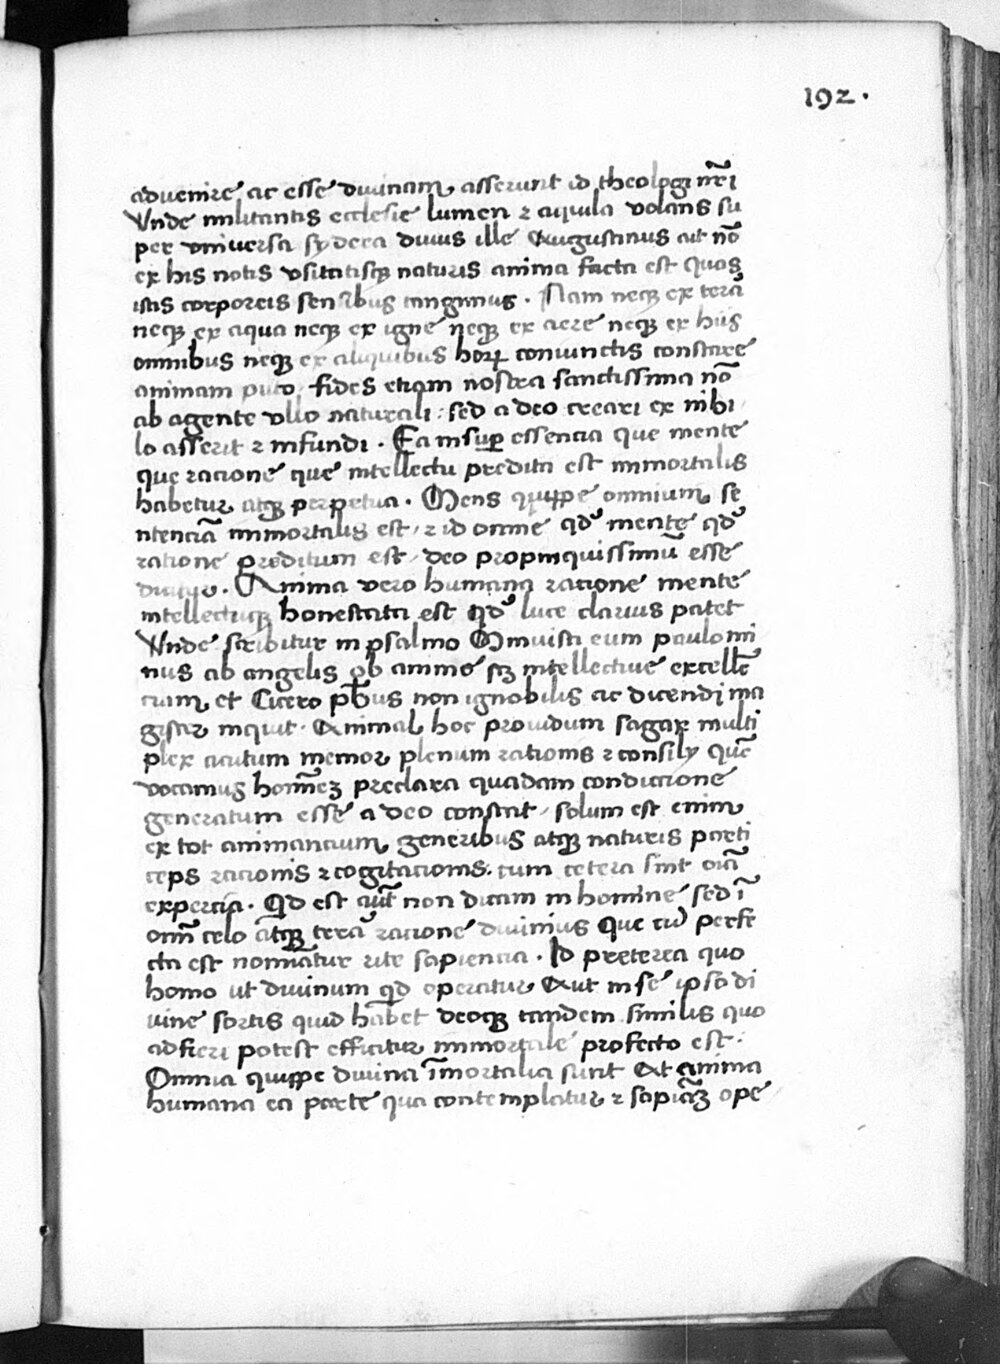 192.
advenire ac esse divinam asserunt id theologi nr̄i
Vnde militantis ecclesie lumen ⁊ aquila volans su
per vniversa sydera divus ille Augustinus ait nō
ex his notis vsitatisqꝫ naturis anima facta est quas
istis corporeis sensibus tangimus. Nam neqꝫ ex terā
neqꝫ ex aqua neqꝫ ex igne neqꝫ ex aere neqꝫ ex hiis
omnibus neqꝫ ex aliquibus hoꝝ coniunctis constare
animam puto, fides etiam nostra sanctissima nō
ab agente vllo naturali: sed a deo creari ex nihi
lo asserit ⁊ infundi. Ea insuꝑ essencia que mente
que racione que intellectu predita est immortalis
habetur atqꝫ perpetua. Mens quippe omnium se
ntenciā immortalis est, ⁊ id omne qd̓ mente qd̓
ratione preditum est, deo propinquissimū esse
dicitur. Anima vero humana ratione mente
intellectuqꝫ honestata est qd̓ luce clarius patet
Vnde scribitur in psalmo Minuisti eum paulo mi
nus ab angelis ob anime scꝫ intellective excellē
ciam et Cicero ph̄us non ignobilis ac dicendi ma
gister inquit. Animal hoc providum sagax multi
plex acutum memor plenum rationis ⁊ consilij quē
vocamus hom̄eꝫ preclara quadam condicione
generatum esse a deo constat, solum est enim
ex tot animancium generibus atqꝫ naturis parti
ceps racionis ⁊ cogitacionis. cum cetera sint oīa
expercia. Qd est aūt non dicam in homine sed ī
omī celo atqꝫ terā ratione divinius Que cū perfe
cta est nominatur rite sapiencia. Id preterea quo
homo ut divinum qd operatur Aut in se ipso di
vine sortis quid habet deoqꝫ tandem similis quo
ad fieri potest efficitur immortale profecto est.
Omnia quippe divina īmortalia sunt At anima
humana ea parte qua contemplatur ⁊ sapiāꝫ ope